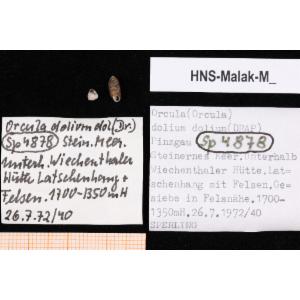 HNS-Malak-M_
Orcula dolium dol.(Dr.)
Sp 4878 Stein. Meer.
Unterh. Wiechenthaler
Hütte Latschenhang +
Felsen. 1700-1350mH
26.7.72/40
Orcula(Orcula)
dolium dolium(DRAP)
Pinzgau Sp 4878
Steinernes Meer,Unterhalb
Wiechenthaler Hütte,Lat-
schenhang mit Felsen,Ge-
siebe in Felsnähe.1700-
1350mH,26.7.1972/40
SPERLING